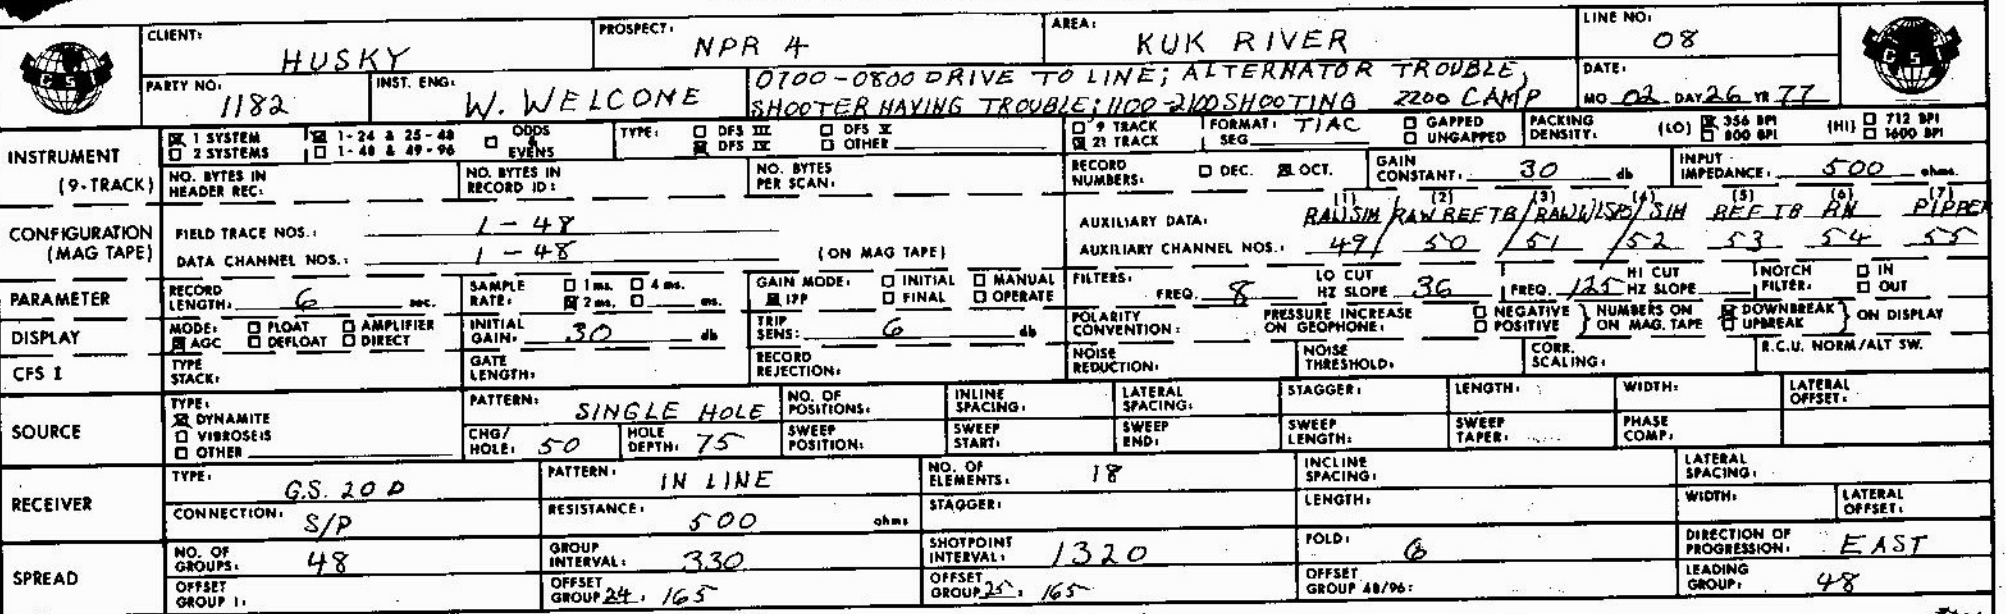 CLIENT: HUSKY PROSPECT: NPR 4 AREA: KUK RIVER LINE NO: 08
GSI PARTY NO: 1182 INST. ENG: W. WELCOME 0700-0800 DRIVE TO LINE; ALTERNATOR TROUBLE, DATE: GSI
SHOOTER HAVING TROUBLE; 1100-2100 SHOOTING 2200 CAMP MO 02 DAY 26 YR 77
INSTRUMENT 1 SYSTEM 1-24 & 25-48 ODDS & EVENS TYPE: DFS III DFS V 9 TRACK FORMAT: TIAC GAPPED PACKING DENSITY: (LO) 356 BPI (HI) 712 BPI
2 SYSTEMS 1-48 & 49-96 DFS IV OTHER 21 TRACK SEG UNGAPPED 800 BPI 1600 BPI
(9-TRACK) NO. BYTES IN HEADER REC: NO. BYTES IN RECORD ID: NO. BYTES PER SCAN: RECORD NUMBERS: DEC. OCT. GAIN CONSTANT: 30 db INPUT IMPEDANCE: 500 ohms.
(1) (2) (3) (4) (5) (6) (7)
CONFIGURATION FIELD TRACE NOS.: 1-48 AUXILIARY DATA: RAWSIH/RAW REF TB/RAW / SIH REF TB RN
(MAG TAPE) DATA CHANNEL NOS.: 1-48 (ON MAG TAPE) AUXILIARY CHANNEL NOS.: 49/ 50 /51 /52 53 54 55
PARAMETER RECORD LENGTH: 6 sec. SAMPLE RATE: 1 ms. 4 ms. 2 ms. ms. GAIN MODE: INITIAL MANUAL IFP FINAL OPERATE FILTERS: FREQ. 8 LO CUT HZ SLOPE 36 FREQ. 125 HI CUT HZ SLOPE NOTCH FILTER: IN OUT
DISPLAY MODE: FLOAT AMPLIFIER AGC DEFLOAT DIRECT INITIAL GAIN: 30 db TRIP SENS: 6 db POLARITY CONVENTION: PRESSURE INCREASE ON GEOPHONE: NEGATIVE POSITIVE NUMBERS ON ON MAG. TAPE DOWNBREAK UPBREAK ON DISPLAY
CFS I TYPE STACK: GATE LENGTH: RECORD REJECTION: NOISE REDUCTION: NOISE THRESHOLD: CORR. SCALING: R.C.U. NORM/ALT SW.
SOURCE TYPE: DYNAMITE VIBROSEIS OTHER PATTERN: SINGLE HOLE NO. OF POSITIONS: INLINE SPACING: LATERAL SPACING: STAGGER: LENGTH: WIDTH: LATERAL OFFSET:
CHG/HOLE: 50 HOLE DEPTH: 75 SWEEP POSITION: SWEEP START: SWEEP END: SWEEP LENGTH: SWEEP TAPER: PHASE COMP:
RECEIVER TYPE: G.S. 20 D PATTERN: IN LINE NO. OF ELEMENTS: 18 INCLINE SPACING: LATERAL SPACING:
CONNECTION: S/P RESISTANCE: 500 ohms STAGGER: LENGTH: WIDTH: LATERAL OFFSET:
SPREAD NO. OF GROUPS: 48 GROUP INTERVAL: 330 SHOTPOINT INTERVAL: 1320 FOLD: 6 DIRECTION OF PROGRESSION: EAST
OFFSET GROUP 1: OFFSET GROUP 24: 165 OFFSET GROUP 25: 165 OFFSET GROUP 48/96: LEADING GROUP: 48